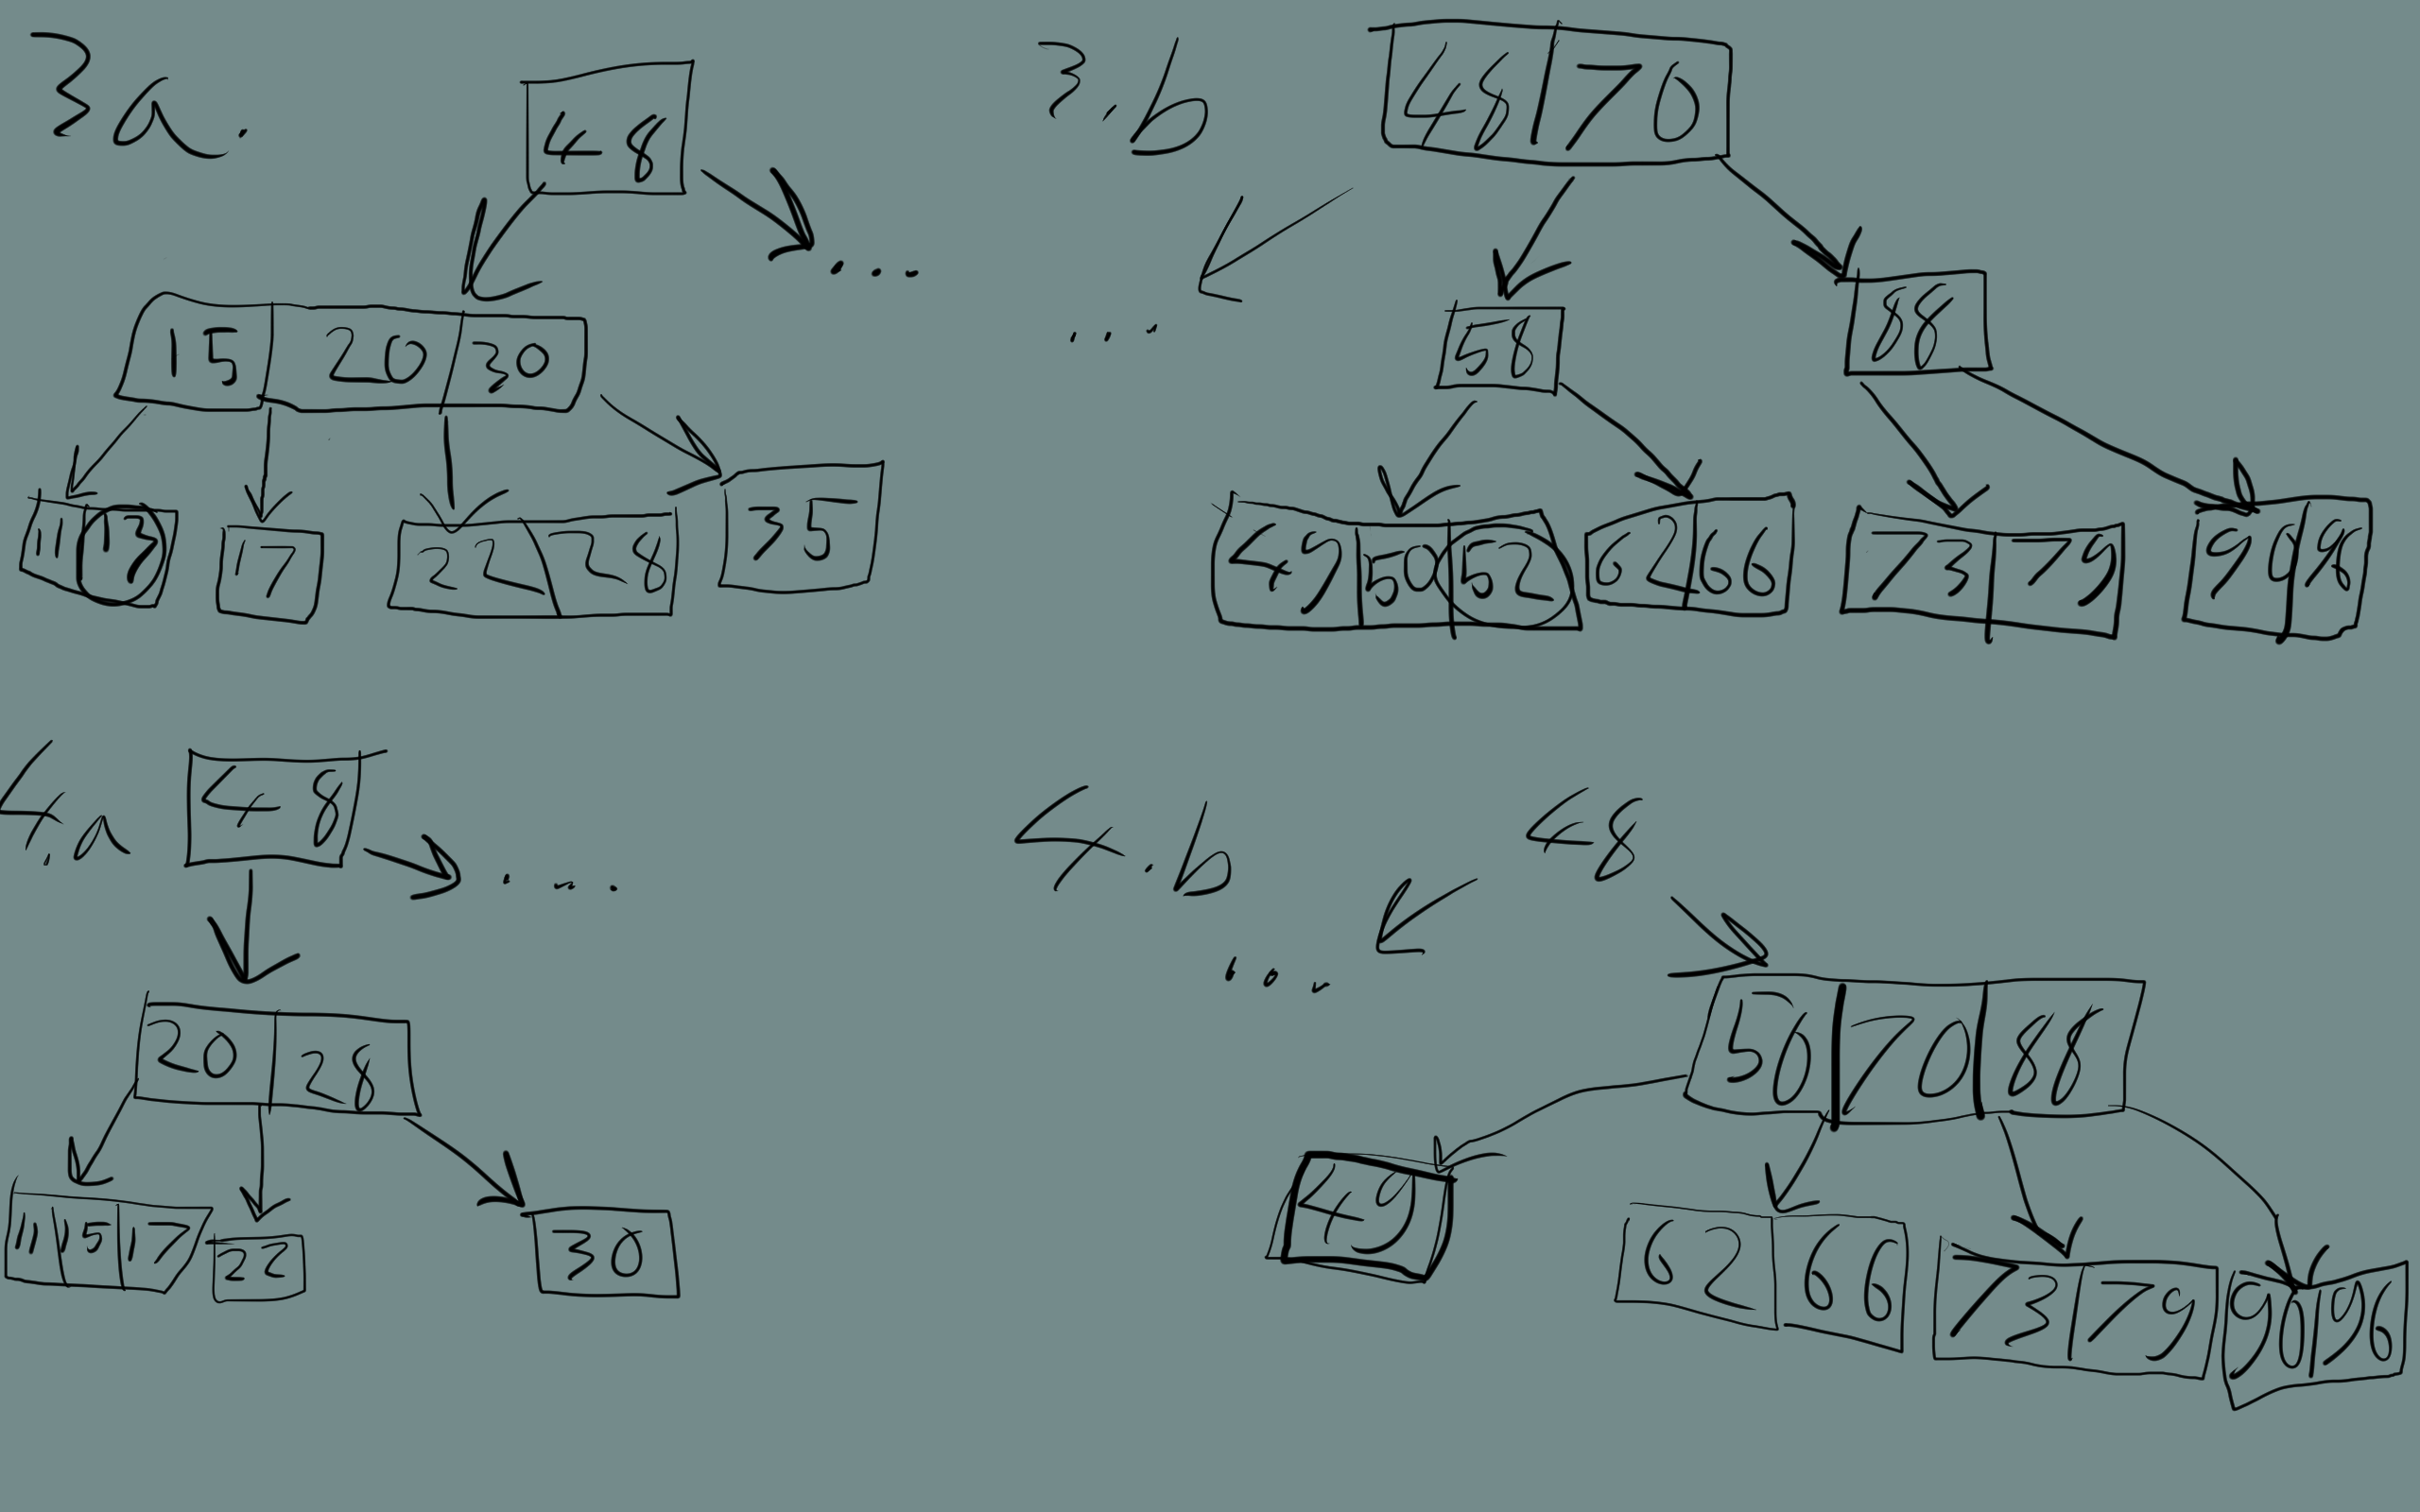 3a.
48
...
15 20 30
11 13 17 22 28 35
3.b
48 70
...
58 88
49 50 52 62 66 73 79 90 96
4.a
48
...
20 28
11 15 17 22 30
4.b
48
...
50 70 88
49 62 66 73 79 90 96